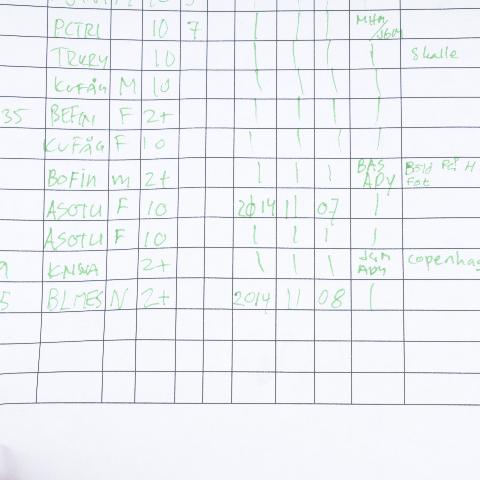 PCTRI 10 7 | | | MHM/JGM
TRKRY 10 | | | | Skalle
KUFÅG M 10 | | | |
35 BEFIN F 2+ | | | |
KUFÅG F 10 | | | |
BOFIN M 2+ | | | BAS ADY Böld På H Fot
ASOTU F 10 2014 11 07 |
ASOTU F 10 | | | |
9 KNSVA 2+ | | | JGM ADY Copenhag
5 BLMES N 2+ 2014 11 08 |